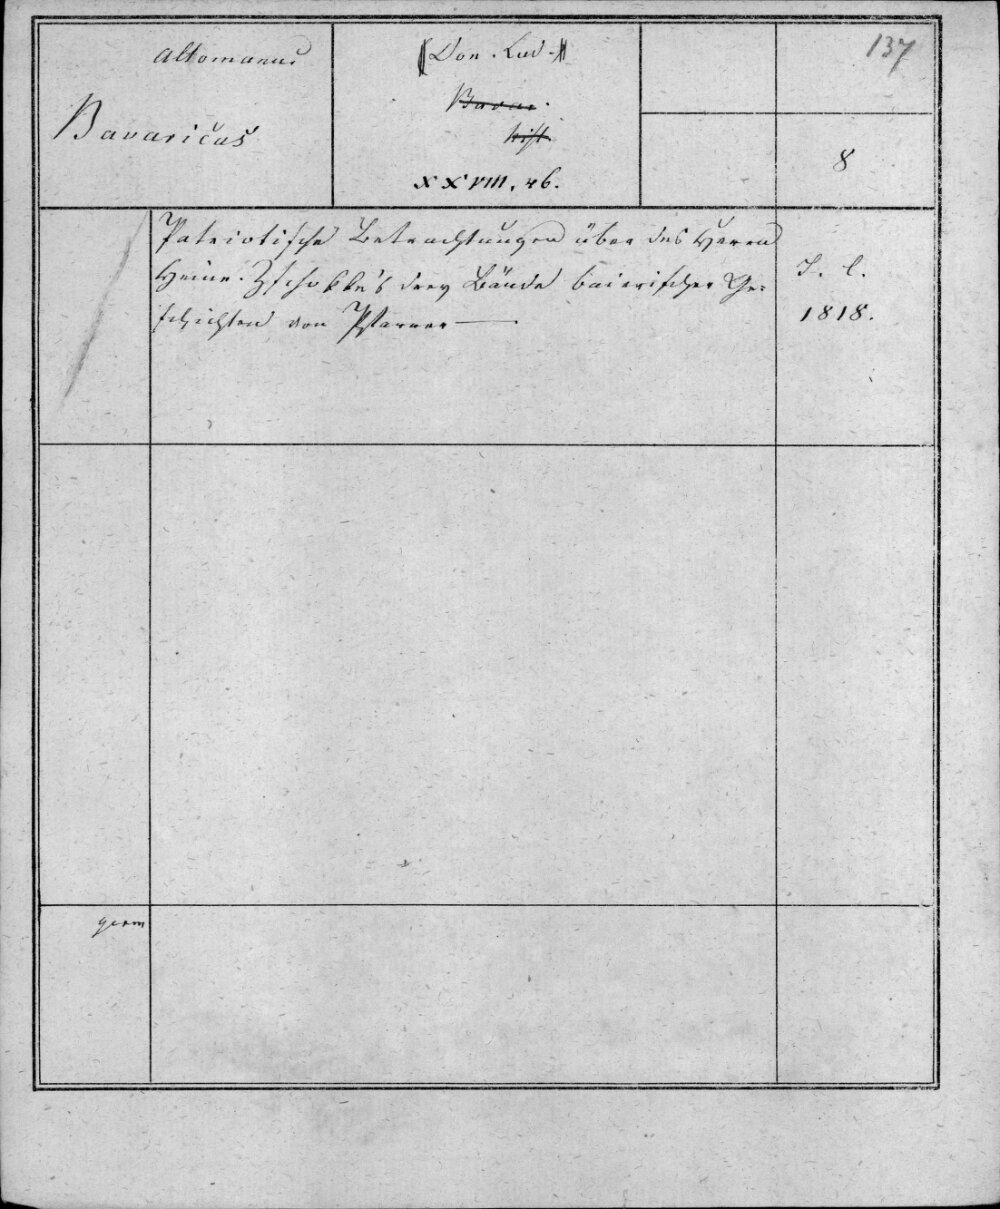 Altomanus
Bavaricus
(Don. Lud.)
Bavar.
hist.
XXVIII, 46.
137
8
Patriotische Betrachtungen über des Herrn
Heinr. Zschokke's drey Bände baierischer Ge-
schichten von Pfarrer
S. l.
1818.
germ